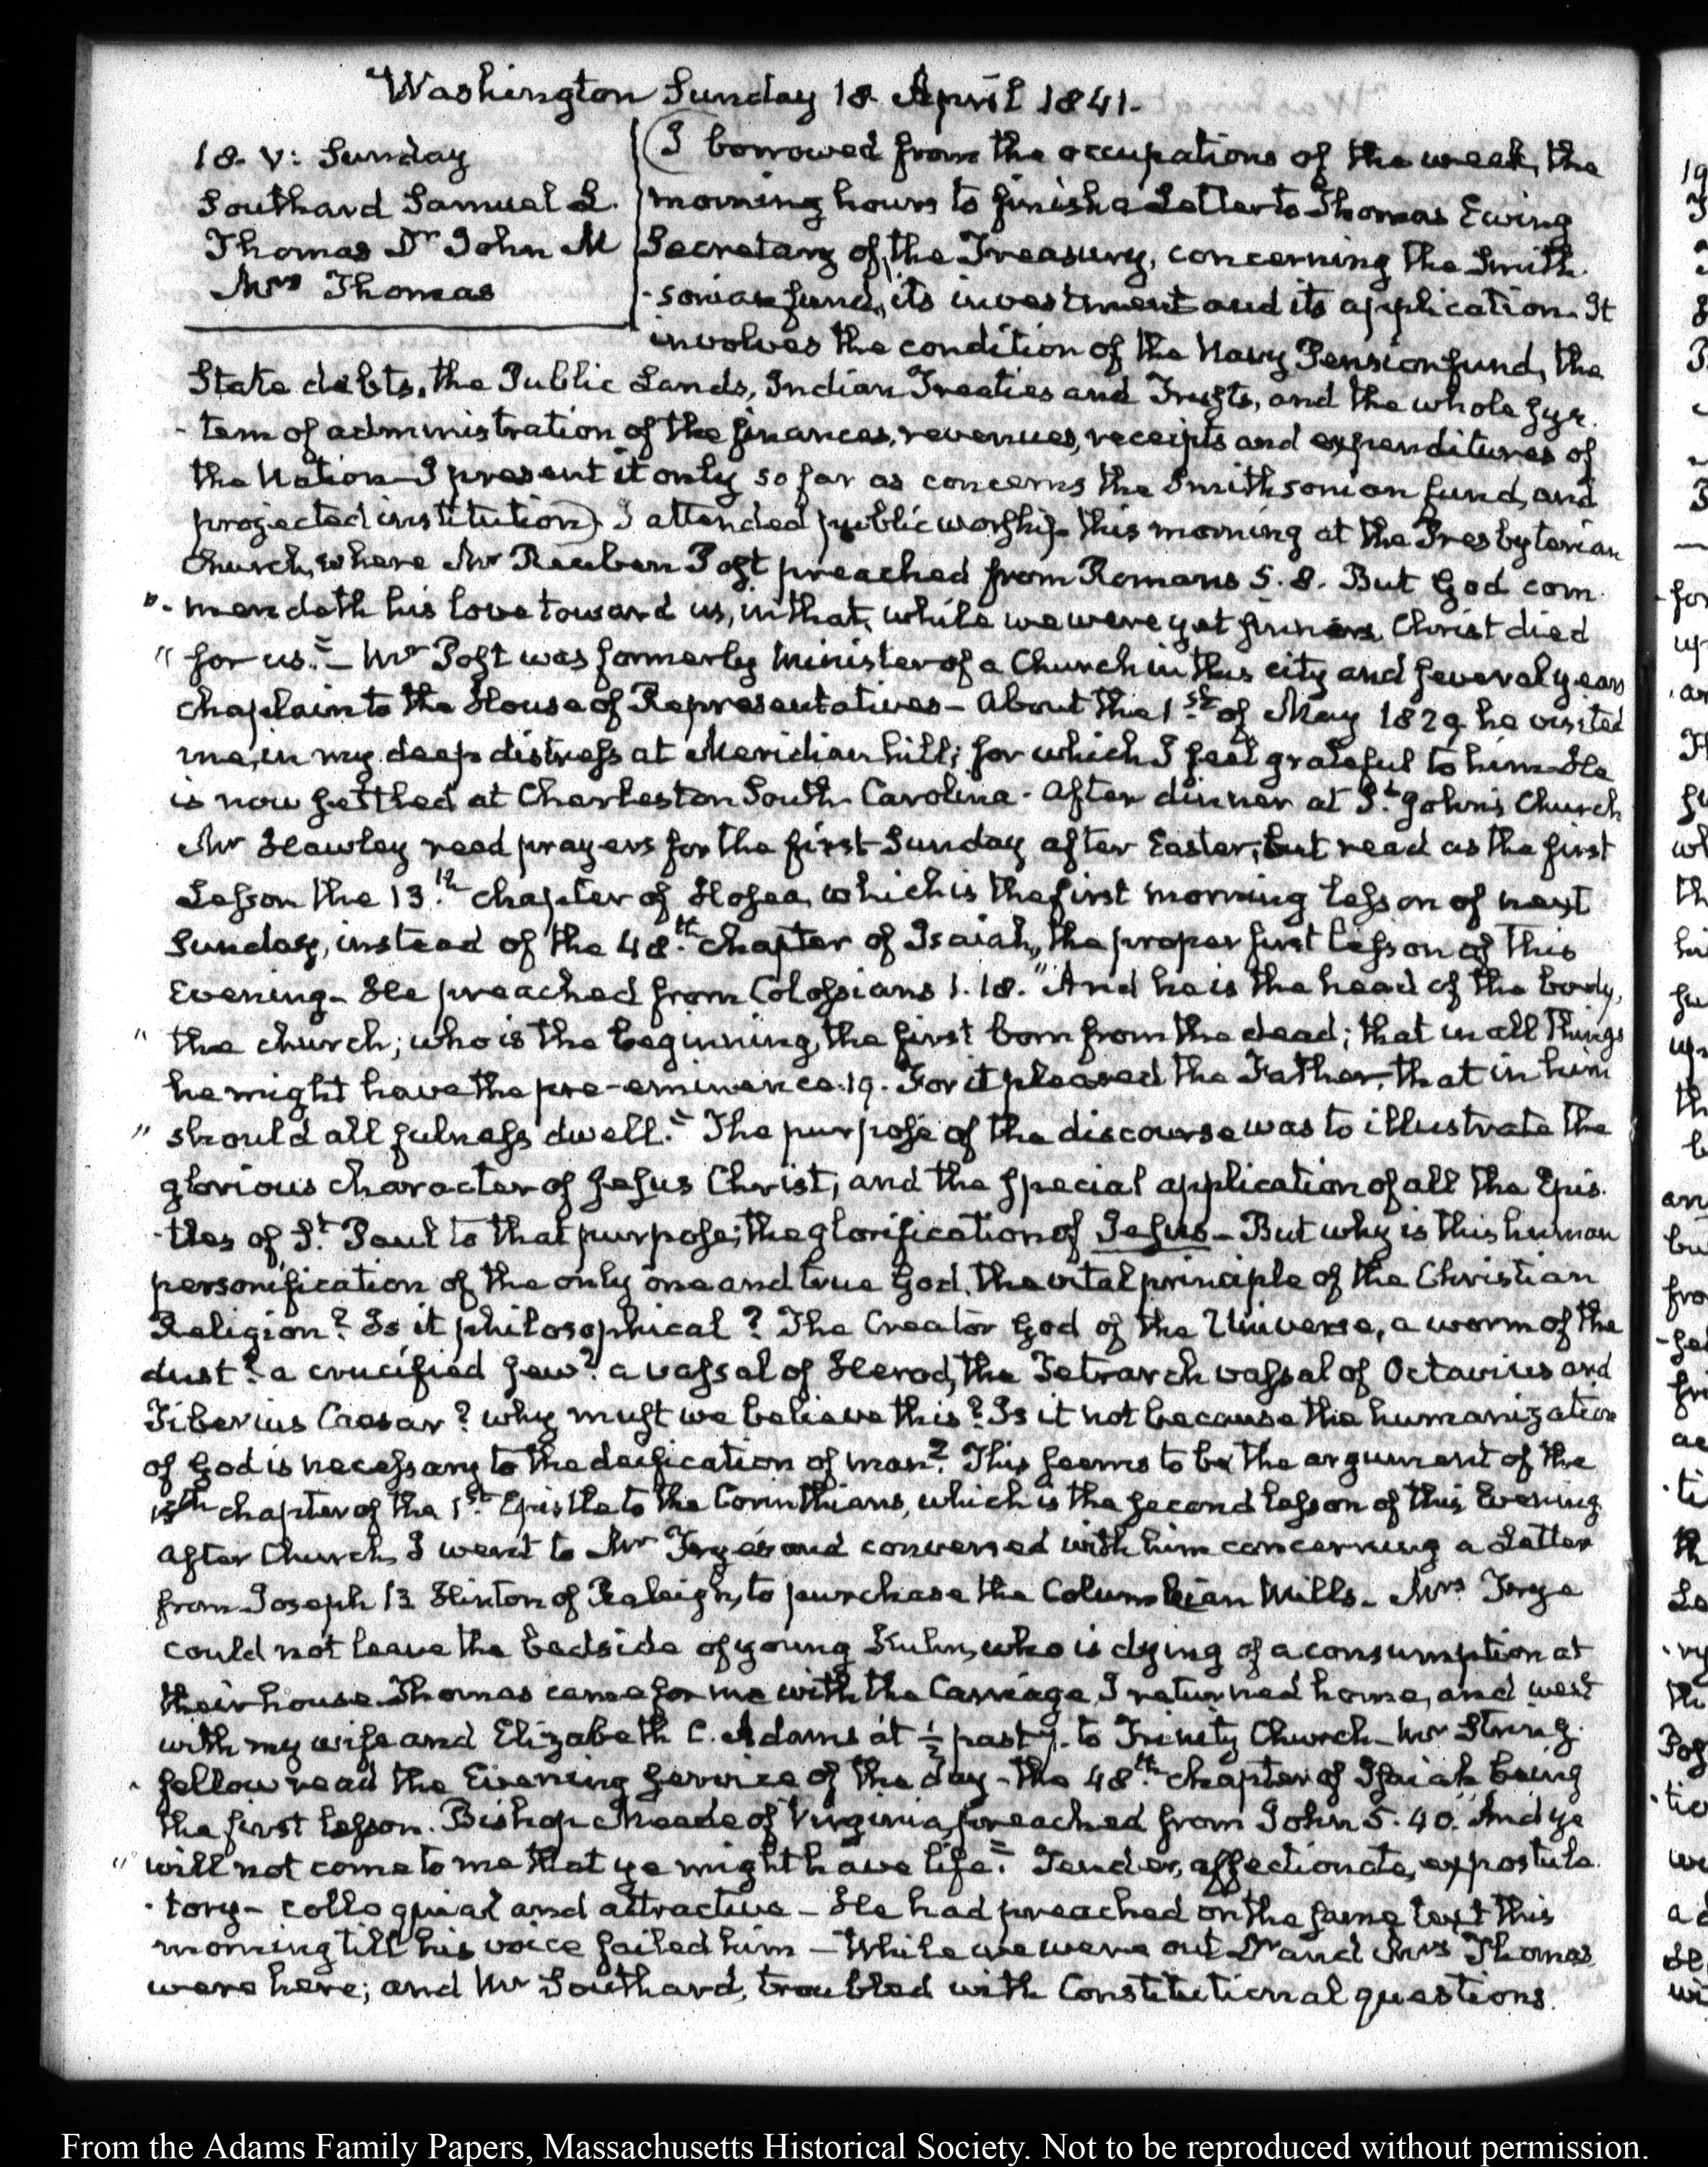 Washington Sunday 18. April 1841.
18. V: Sunday
Southard Samuel L.
Thomas Dr John M
Mrs Thomas
(I borrowed from the occupations of the week, the
morning hours to finish a Letter to Thomas Ewing
Secretary of, the Treasury, concerning the Smith-
-sonian fund, its investment and its application. It
involves the condition of the Navy Pension fund, the
State debts, the Public Lands, Indian Treaties and Trusts, and the whole sys-
-tem of administration of the finances, revenues, receipts and expenditures of
the Nation—I present it only so far as concerns the Smithsonian fund, and
projected institution). I attended public worship this morning at the Presbyterian
Church, where Mr Reuben Post preached from Romans 5. 8. But God com-
"-mendeth his love toward us, in that, while we were yet sinners, Christ died
"for us."— Mr Post was formerly Minister of a Church in this city and several years
chaplain to the House of Representatives— About the 1st of May 1829 he visited
me, in my deep distress at Meridian hill; for which I feel grateful to him. He
is now settled at Charleston South Carolina. After dinner at St. John's Church
Mr Hawley read prayers for the first Sunday after Easter; but read as the first
Lesson the 13.th chapter of Hosea, which is the first morning lesson of next
Sunday, instead of the 48.th chapter of Isaiah, the proper first lesson of this
Evening— He preached from Colossians 1. 18. "And he is the head of the body,
" the church; who is the beginning, the first born from the dead; that in all things
he might have the pre-eminence. 19. For it pleased the Father, that in him
" should all fulness dwell." The purpose of the discourse was to illustrate the
glorious character of Jesus Christ, and the special application of all the Epis-
-tles of St. Paul to that purpose; the glorification of Jesus— But why is this human
personification of the only one and true God, the vital principle of the Christian
Religion? Is it philosophical? The Creator God of the Universe, a worm of the
dust? a crucified Jew? a vassal of Herod, the Tetrarch vassal of Octavius and
Tiberius Caesar? why must we believe this? Is it not because the humanization
of God is necessary to the deification of man? This seems to be the argument of the
15th chapter of the 1st Epistle to the Corinthians, which is the second lesson of this Evening
After Church, I went to Mr Frye's and conversed with him concerning a Letter
from Joseph B Hinton of Raleigh, to purchase the Columbian Mills— Mrs Frye
could not leave the bedside of young Kuhn, who is dying of a consumption at
their house. Thomas came for me with the Carriage, I returned home, and went
with my wife and Elizabeth C. Adams at ½ past 7. to Trinity Church— Mr String-
-fellow read the Evening service of the day—the 48.th chapter of Isaiah being
the first lesson. Bishop Meade of Virginia, preached from John 5. 40. "And ye
" will not come to me that ye might have life." Tender, affectionate, expostula-
-tory— colloquial and attractive— He had preached on the same text this
morning till his voice failed him— While we were out Dr and Mrs Thomas
were here; and Mr Southard, troubled with Constitutional questions.
From the Adams Family Papers, Massachusetts Historical Society. Not to be reproduced without permission.